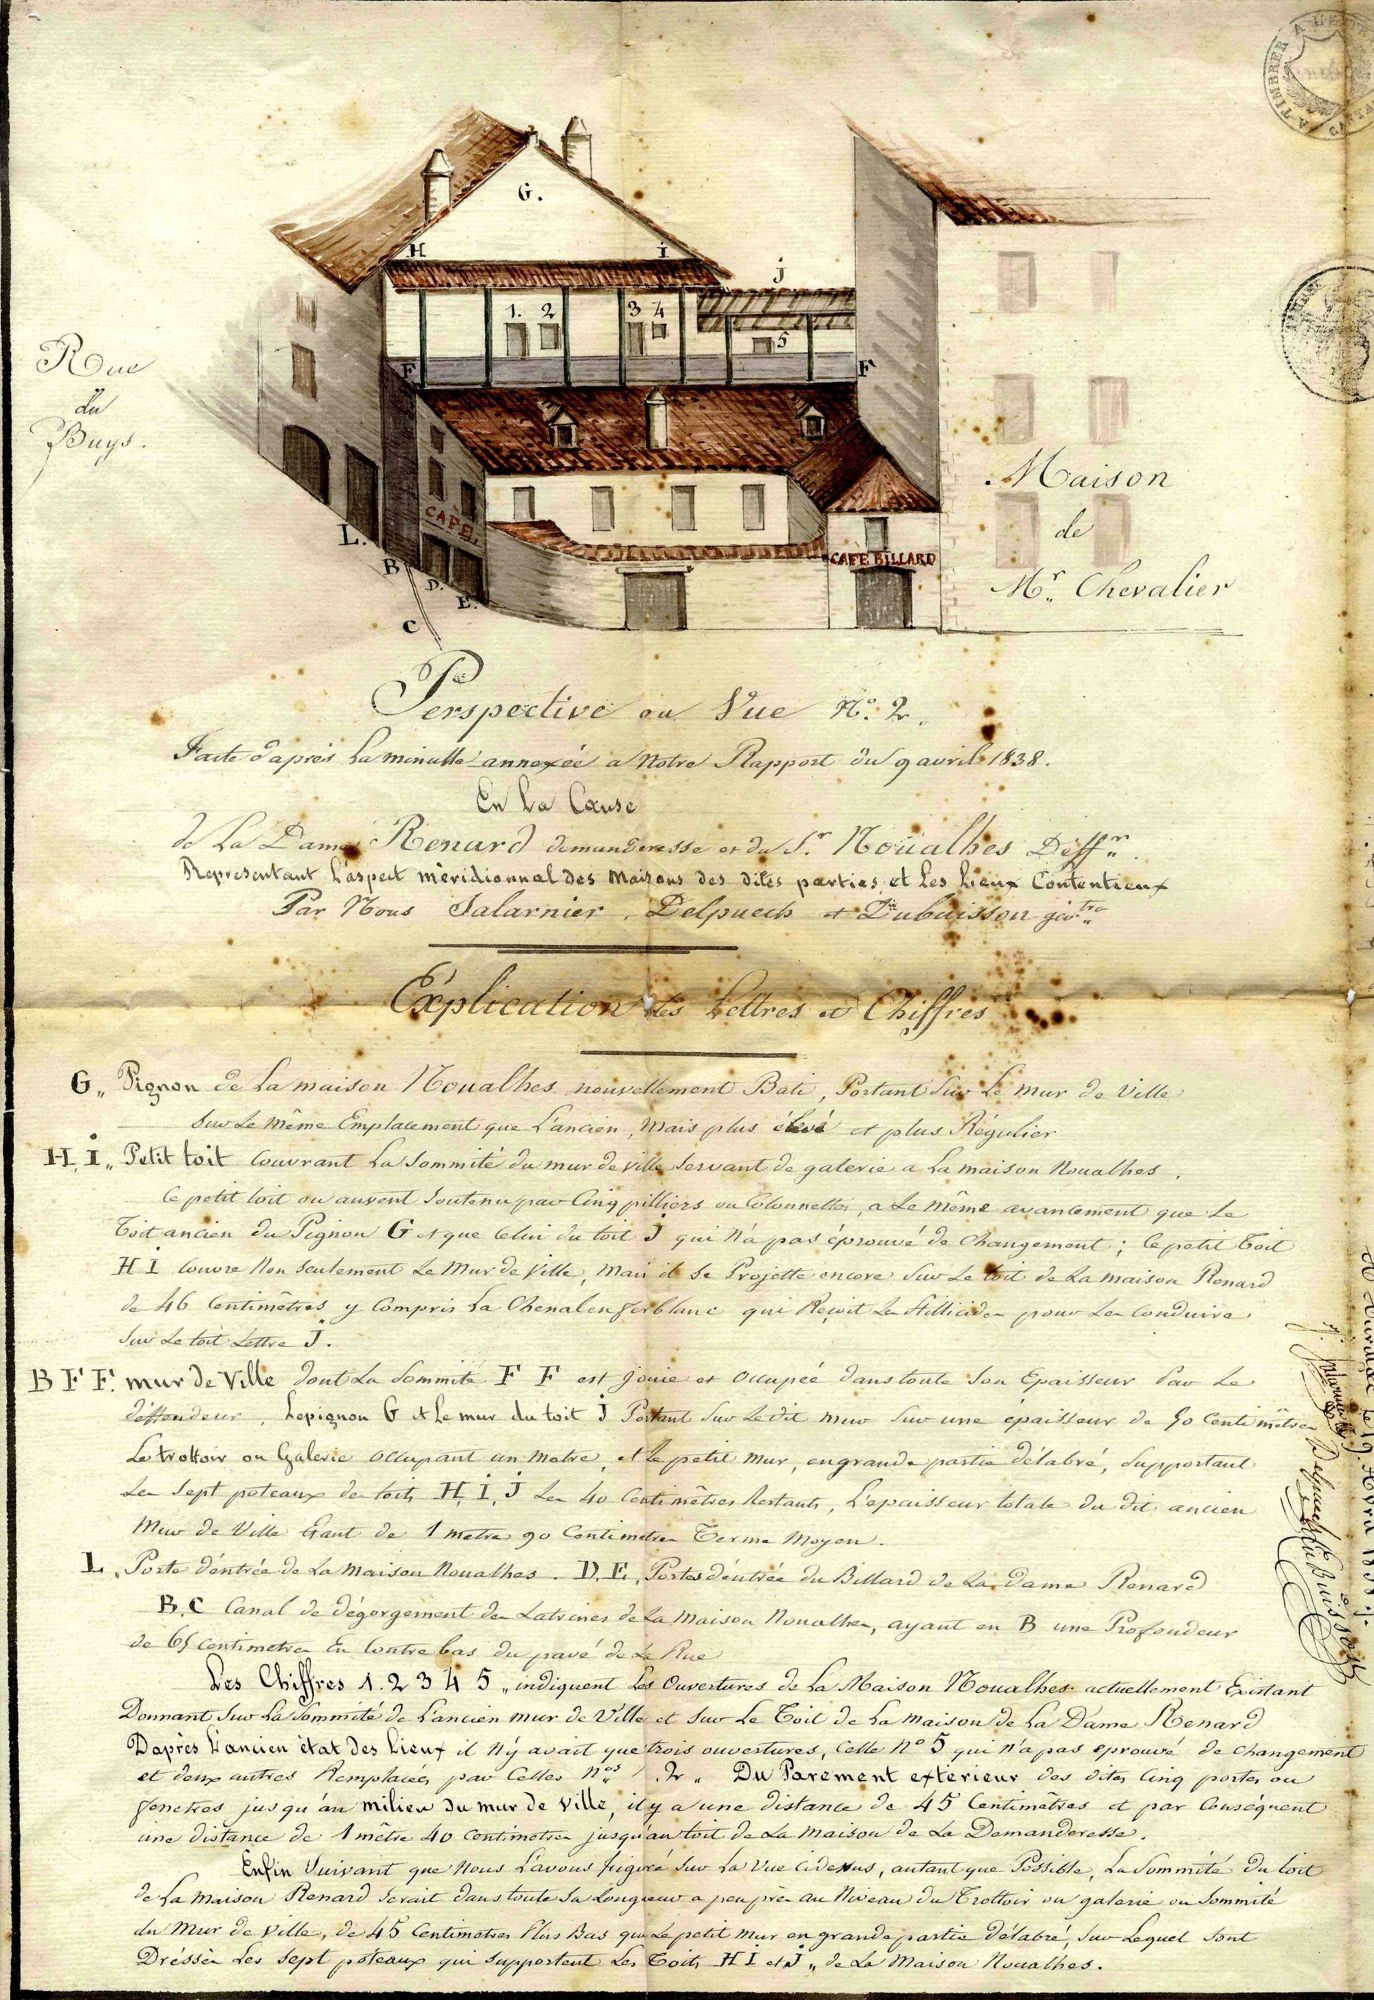 A TIMBRER A L'EXTRA
G.
H
i
j
1. 2 3 4
5
F F
Rue
du
Buys.
CAFE.
CAFE BILLARD
L.
B
D.
E.
C
Maison
de
Mr. Chevalier
Perspective ou Vue No. 2.
Faite d'après La minutte annexée a Notre Rapport du 9 avril 1838.
En La Cause
de La Dame Renard demanderesse et du Sr. Noüalhes Déffr.
Representant L'aspect méridionnal des Maisons des dites parties, et Les Lieux Contentieux
Par Nous Salarnier, Delpuech et Dubuisson
Explication des Lettres et Chiffres
G „ Pignon de La maison Noualhes nouvellement Bati, Portant Sur Le mur de Ville
Sur Le même Emplacement que L'ancien, Mais plus élevé et plus Régulier
H, i „ Petit toit Couvrant La Sommité du mur de ville Servant de galerie a La maison Noualhes.
Ce petit toit ou auvent Soutenu par Cinq pilliers ou Colonnettes, a Le même avancement que Le
Toit ancien du Pignon G et que Celui du toit J qui n'a pas éprouvé de Changement; Ce petit Toit
H i Couvre Non Seulement Le Mur de Ville, Mais il Se Projette encore Sur Le toit de La maison Renard
de 46 Centimètres y Compris La Chenal en ferblanc qui Reçoit Les Stillicides pour Les Conduire
Sur Le toit Lettre J.
B F F. mur de Ville dont La Sommité F F est jouie et Occupée dans toute Son Epaisseur Par Le
déffendeur, Le pignon G et Le mur du toit J Portant Sur Le dit mur Sur une épaisseur de 50 Centimètres
Le trottoir ou Galerie Occupant un mètre, et Le petit Mur, en grande partie délabré, Supportant
Les Sept poteaux des toits H, i, J Les 40 Centimètres Restants, L'épaisseur totale du dit ancien
Mur de Ville Etant de 1 metre 90 Centimetres Terme Moyen.
L „ Porte d'entrée de La maison Noualhes. D.E., Portes d'entrée du Billard de La Dame Renard
B.C Canal de dégorgement des Latrines de La maison Noualhes, ayant en B une Profondeur
de 65 Centimetres En Contre bas du pavé de La Rue
Les Chiffres 1. 2 3 4 5 „ indiquent Les Ouvertures de La Maison Noualhes actuellement Existant
Donnant Sur La Sommité de L'ancien mur de Ville et Sur Le Toit de La maison de La Dame Renard
D'après L'ancien état des Lieux il N'y avait que trois ouvertures, Celle No 5 qui n'a pas eprouvé de Changement
et deux autres Remplacées par Celles Nos 1. 2 „ Du Parement extérieur des dites Cinq portes ou
fenetres jusqu'au milieu du mur de Ville, il y a une distance de 45 Centimètres et par Conséquent
une distance de 1 mètre 40 Centimetres jusqu'au toit de La maison de La Demanderesse.
Enfin Suivant que Nous L'avons figuré Sur La Vue Cidessus, autant que Possible, La Sommité du toit
de La maison Renard Serait dans toute Sa Longueur a peu près au Niveau du Trottoir ou galerie ou Sommité
du Mur de Ville, de 45 Centimetres Plus Bas que Le petit Mur en grande partie délabré, Sur Lequel Sont
Dressés Les Sept poteaux qui Supportent Les Toits H i et J „ de La Maison Noualhes.
Delpuech
Dubuisson